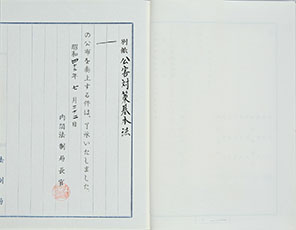 別紙公害対策基本法
の公布を奏上する件は、了承いたしました
昭和四十二年七月二十二日
内閣法制局長官
法制局